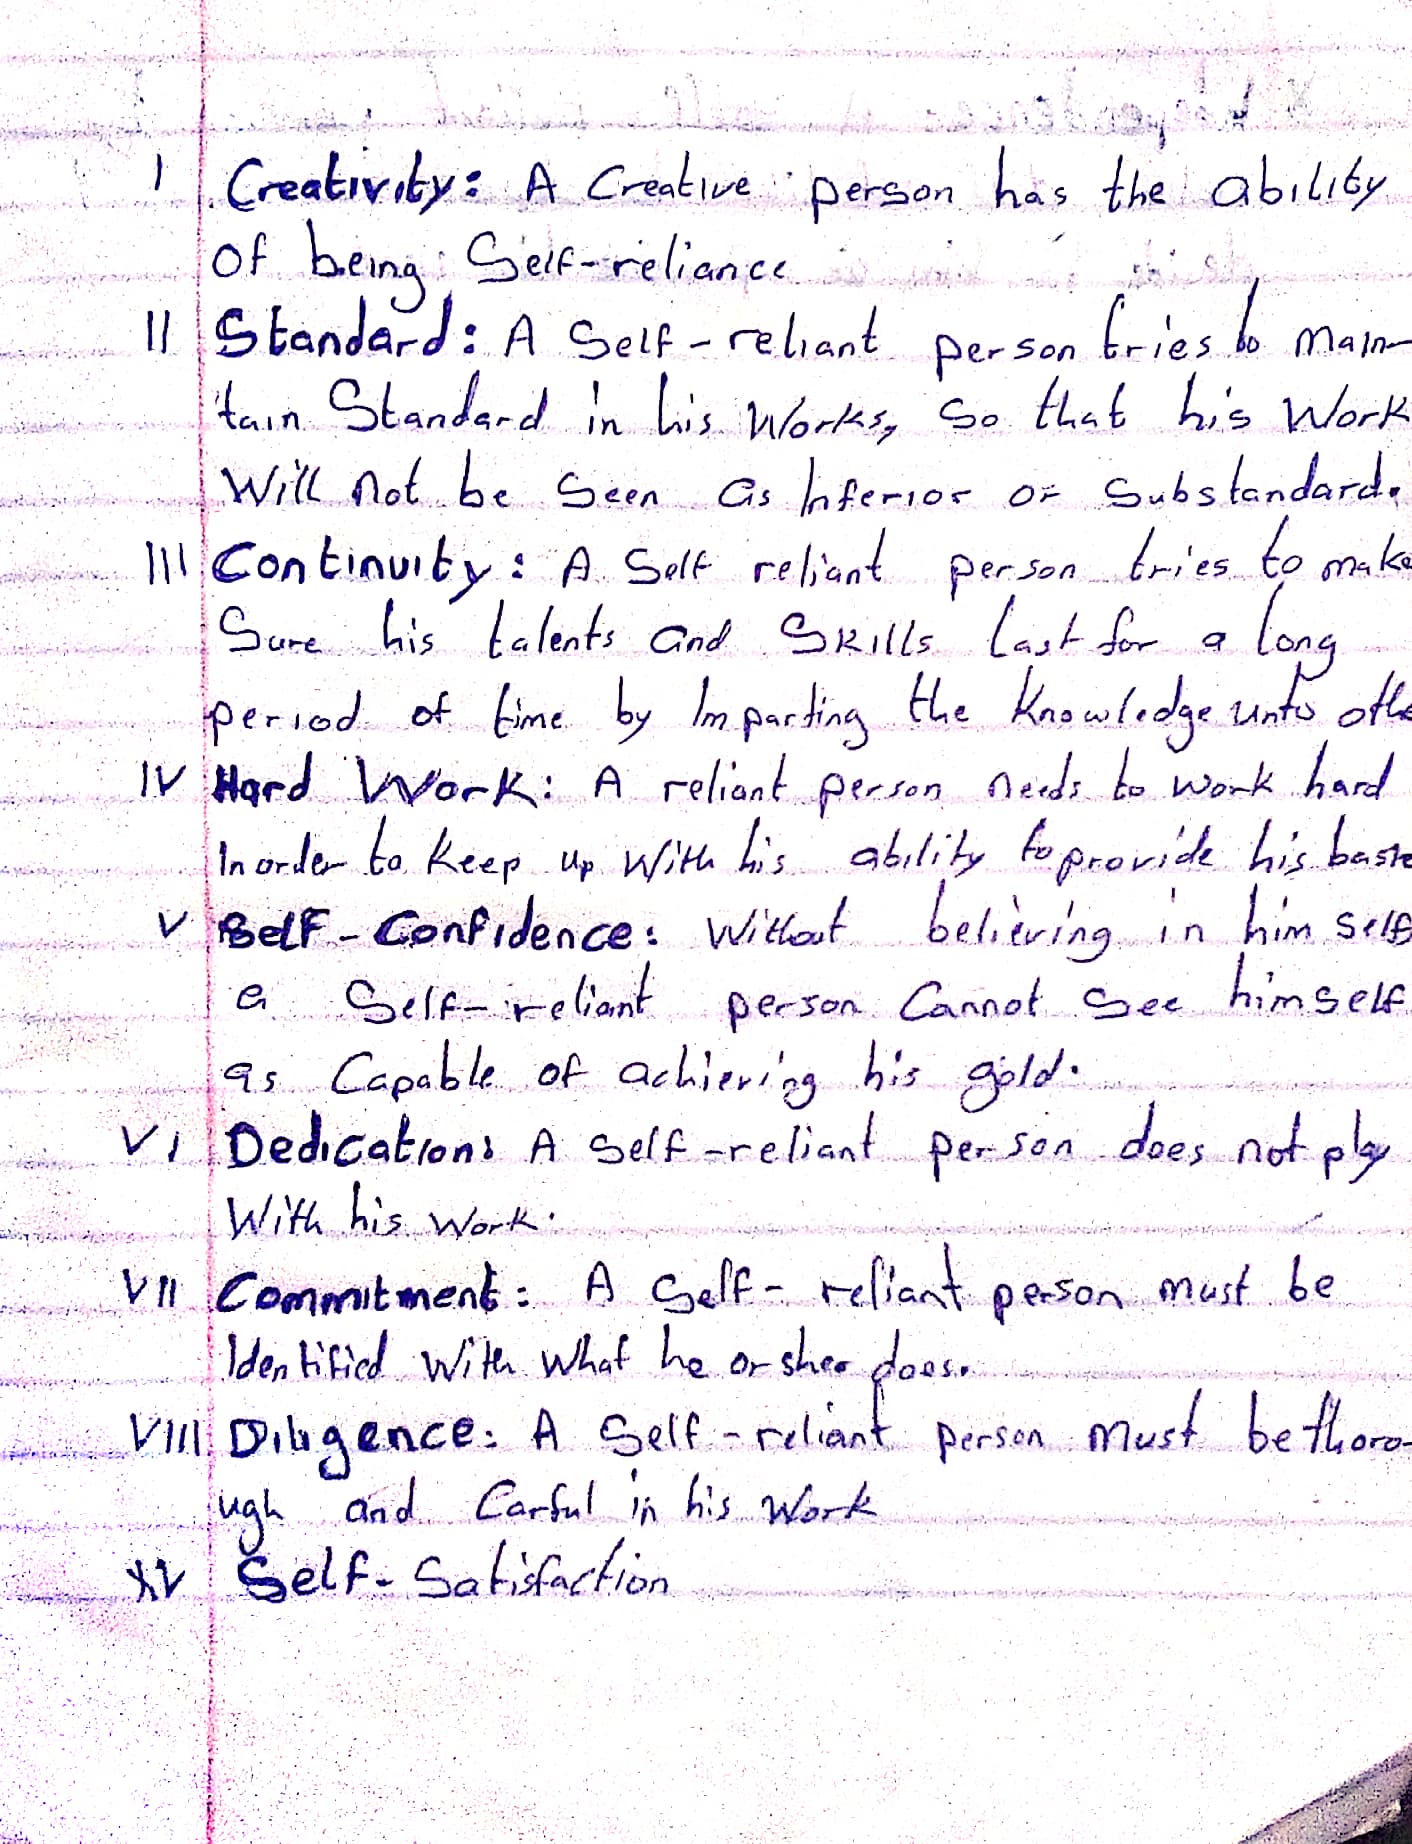 I Creativity: A Creative person has the ability
of being Self-reliance
II Standard: A Self-reliant person tries to main-
tain Standard in his Works, So that his Work
Will not be Seen as Inferior or Substandard.
III Continuity: A Self reliant person tries to make
Sure his talents and Skills last for a long
period of time by Imparting the Knowledge unto othe
IV Hard Work: A reliant person needs to work hard
In order to Keep up With his ability to provide his basic
V Self-Confidence: Without believing in him self
a Self-reliant person Cannot See himself
as Capable of achieving his gold.
VI Dedication: A Self-reliant person does not play
With his work.
VII Commitment: A Self-reliant person must be
Identified With what he or shee does.
VIII Diligence: A Self-reliant person must be thoro-
ugh and Carful in his Work
XV Self-Satisfaction